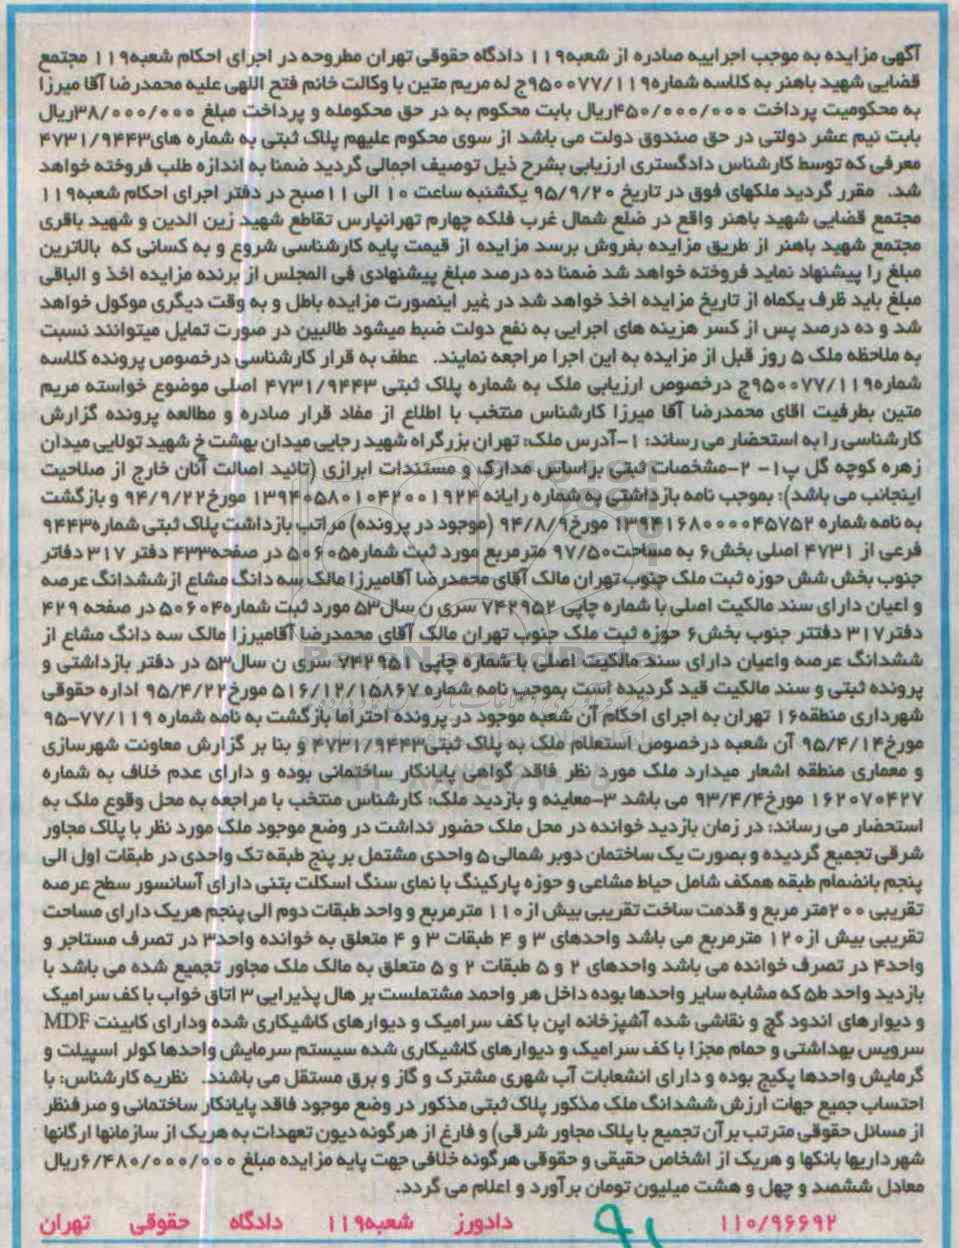 آگهی مزایده به موجب اجراییه صادره از شعبه۱۱۹ دادگاه حقوقی تهران مطروحه در اجرای احکام شعبه۱۱۹ مجتمع
قضایی شهید باهنر به کلاسه شماره۹۵۰۰۷۷/۱۱۹ج له مریم متین با وکالت خانم فتح اللهی علیه محمدرضا آقا میرزا
به محکومیت پرداخت ۴۵۰/۰۰۰/۰۰۰ریال بابت محکوم به در حق محکومله و پرداخت مبلغ ۳۸/۰۰۰/۰۰۰ریال
بابت نیم عشر دولتی در حق صندوق دولت می باشد از سوی محکوم علیهم پلاک ثبتی به شماره های۴۷۳۱/۹۴۴۳
معرفی که توسط کارشناس دادگستری ارزیابی بشرح ذیل توصیف اجمالی گردید ضمنا به اندازه طلب فروخته خواهد
شد. مقرر گردید ملکهای فوق در تاریخ ۹۵/۹/۲۰ یکشنبه ساعت ۱۰ الی ۱۱صبح در دفتر اجرای احکام شعبه۱۱۹
مجتمع قضایی شهید باهنر واقع در ضلع شمال غرب فلکه چهارم تهرانپارس تقاطع شهید زین الدین و شهید باقری
مجتمع شهید باهنر از طریق مزایده بفروش برسد مزایده از قیمت پایه کارشناسی شروع و به کسانی که بالاترین
مبلغ را پیشنهاد نماید فروخته خواهد شد ضمنا ده درصد مبلغ پیشنهادی فی المجلس از برنده مزایده اخذ و الباقی
مبلغ باید ظرف یکماه از تاریخ مزایده اخذ خواهد شد در غیر اینصورت مزایده باطل و به وقت دیگری موکول خواهد
شد و ده درصد پس از کسر هزینه های اجرایی به نفع دولت ضبط میشود طالبین در صورت تمایل میتوانند نسبت
به ملاحظه ملک ۵ روز قبل از مزایده به این اجرا مراجعه نمایند. عطف به قرار کارشناسی درخصوص پرونده کلاسه
شماره۹۵۰۰۷۷/۱۱۹ج درخصوص ارزیابی ملک به شماره پلاک ثبتی ۴۷۳۱/۹۴۴۳ اصلی موضوع خواسته مریم
متین بطرفیت اقای محمدرضا آقا میرزا کارشناس منتخب با اطلاع از مفاد قرار صادره و مطالعه پرونده گزارش
کارشناسی را به استحضار می رساند: ۱-آدرس ملک: تهران بزرگراه شهید رجایی میدان بهشت خ شهید تولایی میدان
زهره کوچه گل پ۱- ۲-مشخصات ثبتی براساس مدارک و مستندات ابرازی (تائید اصالت آنان خارج از صلاحیت
اینجانب می باشد): بموجب نامه بازداشتی به شماره رایانه ۱۳۹۴۰۵۸۰۱۰۴۲۰۰۱۹۲۴ مورخ۹۴/۹/۲۲ و بازگشت
به نامه شماره ۱۳۹۴۱۶۸۰۰۰۰۴۵۷۵۲ مورخ۹۴/۸/۹ (موجود در پرونده) مراتب بازداشت پلاک ثبتی شماره۹۴۴۳
فرعی از ۴۷۳۱ اصلی بخش۶ به مساحت۹۷/۵۰ مترمربع مورد ثبت شماره۵۰۶۰۵ در صفحه۴۳۳ دفتر ۳۱۷ دفاتر
جنوب بخش شش حوزه ثبت ملک جنوب تهران مالک آقای محمدرضا آقامیرزا مالک سه دانگ مشاع از ششدانگ عرصه
و اعیان دارای سند مالکیت اصلی با شماره چاپی ۷۴۲۹۵۲ سری ن سال۵۳ مورد ثبت شماره۵۰۶۰۴ در صفحه ۴۲۹
دفتر۳۱۷ دفتتر جنوب بخش۶ حوزه ثبت ملک جنوب تهران مالک آقای محمدرضا آقامیرزا مالک سه دانگ مشاع از
ششدانگ عرصه واعیان دارای سند مالکیت اصلی با شماره چاپی ۷۴۲۹۵۱ سری ن سال۵۳ در دفتر بازداشتی و
پرونده ثبتی و سند مالکیت قید گردیده است بموجب نامه شماره ۵۱۶/۱۲/۱۵۸۶۷ مورخ۹۵/۴/۲۲ اداره حقوقی
شهرداری منطقه۱۶ تهران به اجرای احکام آن شعبه موجود در پرونده احتراما بازگشت به نامه شماره ۷۷/۱۱۹-۹۵
مورخ۹۵/۴/۱۴ آن شعبه درخصوص استعلام ملک به پلاک ثبتی۴۷۳۱/۹۴۴۳ و بنا بر گزارش معاونت شهرسازی
و معماری منطقه اشعار میدارد ملک مورد نظر فاقد گواهی پایانکار ساختمانی بوده و دارای عدم خلاف به شماره
۱۶۲۰۷۰۴۲۷ مورخ۹۳/۴/۴ می باشد ۳-معاینه و بازدید ملک: کارشناس منتخب با مراجعه به محل وقوع ملک به
استحضار می رساند: در زمان بازدید خوانده در محل ملک حضور نداشت در وضع موجود ملک مورد نظر با پلاک مجاور
شرقی تجمیع گردیده و بصورت یک ساختمان دوبر شمالی ۵ واحدی مشتمل بر پنج طبقه تک واحدی در طبقات اول الی
پنجم بانضمام طبقه همکف شامل حیاط مشاعی و حوزه پارکینگ با نمای سنگ اسکلت بتنی دارای آسانسور سطح عرصه
تقریبی ۲۰۰متر مربع و قدمت ساخت تقریبی بیش از۱۱۰ مترمربع و واحد طبقات دوم الی پنجم هریک دارای مساحت
تقریبی بیش از۱۲۰ مترمربع می باشد واحدهای ۳ و ۴ طبقات ۳ و ۴ متعلق به خوانده واحد۳ در تصرف مستاجر و
واحد۴ در تصرف خوانده می باشد واحدهای ۲ و ۵ طبقات ۲ و ۵ متعلق به مالک ملک مجاور تجمیع شده می باشد با
بازدید واحد ط۵ که مشابه سایر واحدها بوده داخل هر واحمد مشتملست بر هال پذیرایی ۳ اتاق خواب با کف سرامیک
و دیوارهای اندود گچ و نقاشی شده آشپزخانه اپن با کف سرامیک و دیوارهای کاشیکاری شده ودارای کابینت MDF
سرویس بهداشتی و حمام مجزا با کف سرامیک و دیوارهای کاشیکاری شده سیستم سرمایش واحدها کولر اسپیلت و
گرمایش واحدها پکیج بوده و دارای انشعابات آب شهری مشترک و گاز و برق مستقل می باشند. نظریه کارشناس: با
احتساب جمیع جهات ارزش ششدانگ ملک مذکور پلاک ثبتی مذکور در وضع موجود فاقد پایانکار ساختمانی و صرفنظر
از مسائل حقوقی مترتب برآن تجمیع با پلاک مجاور شرقی) و فارغ از هرگونه دیون تعهدات به هریک از سازمانها ارگانها
شهرداریها بانکها و هریک از اشخاص حقیقی و حقوقی هرگونه خلافی جهت پایه مزایده مبلغ ۶/۴۸۰/۰۰۰/۰۰۰ریال
معادل ششصد و چهل و هشت میلیون تومان برآورد و اعلام می گردد.
۱۱۰/۹۶۶۹۲ دادورز شعبه۱۱۹ دادگاه حقوقی تهران